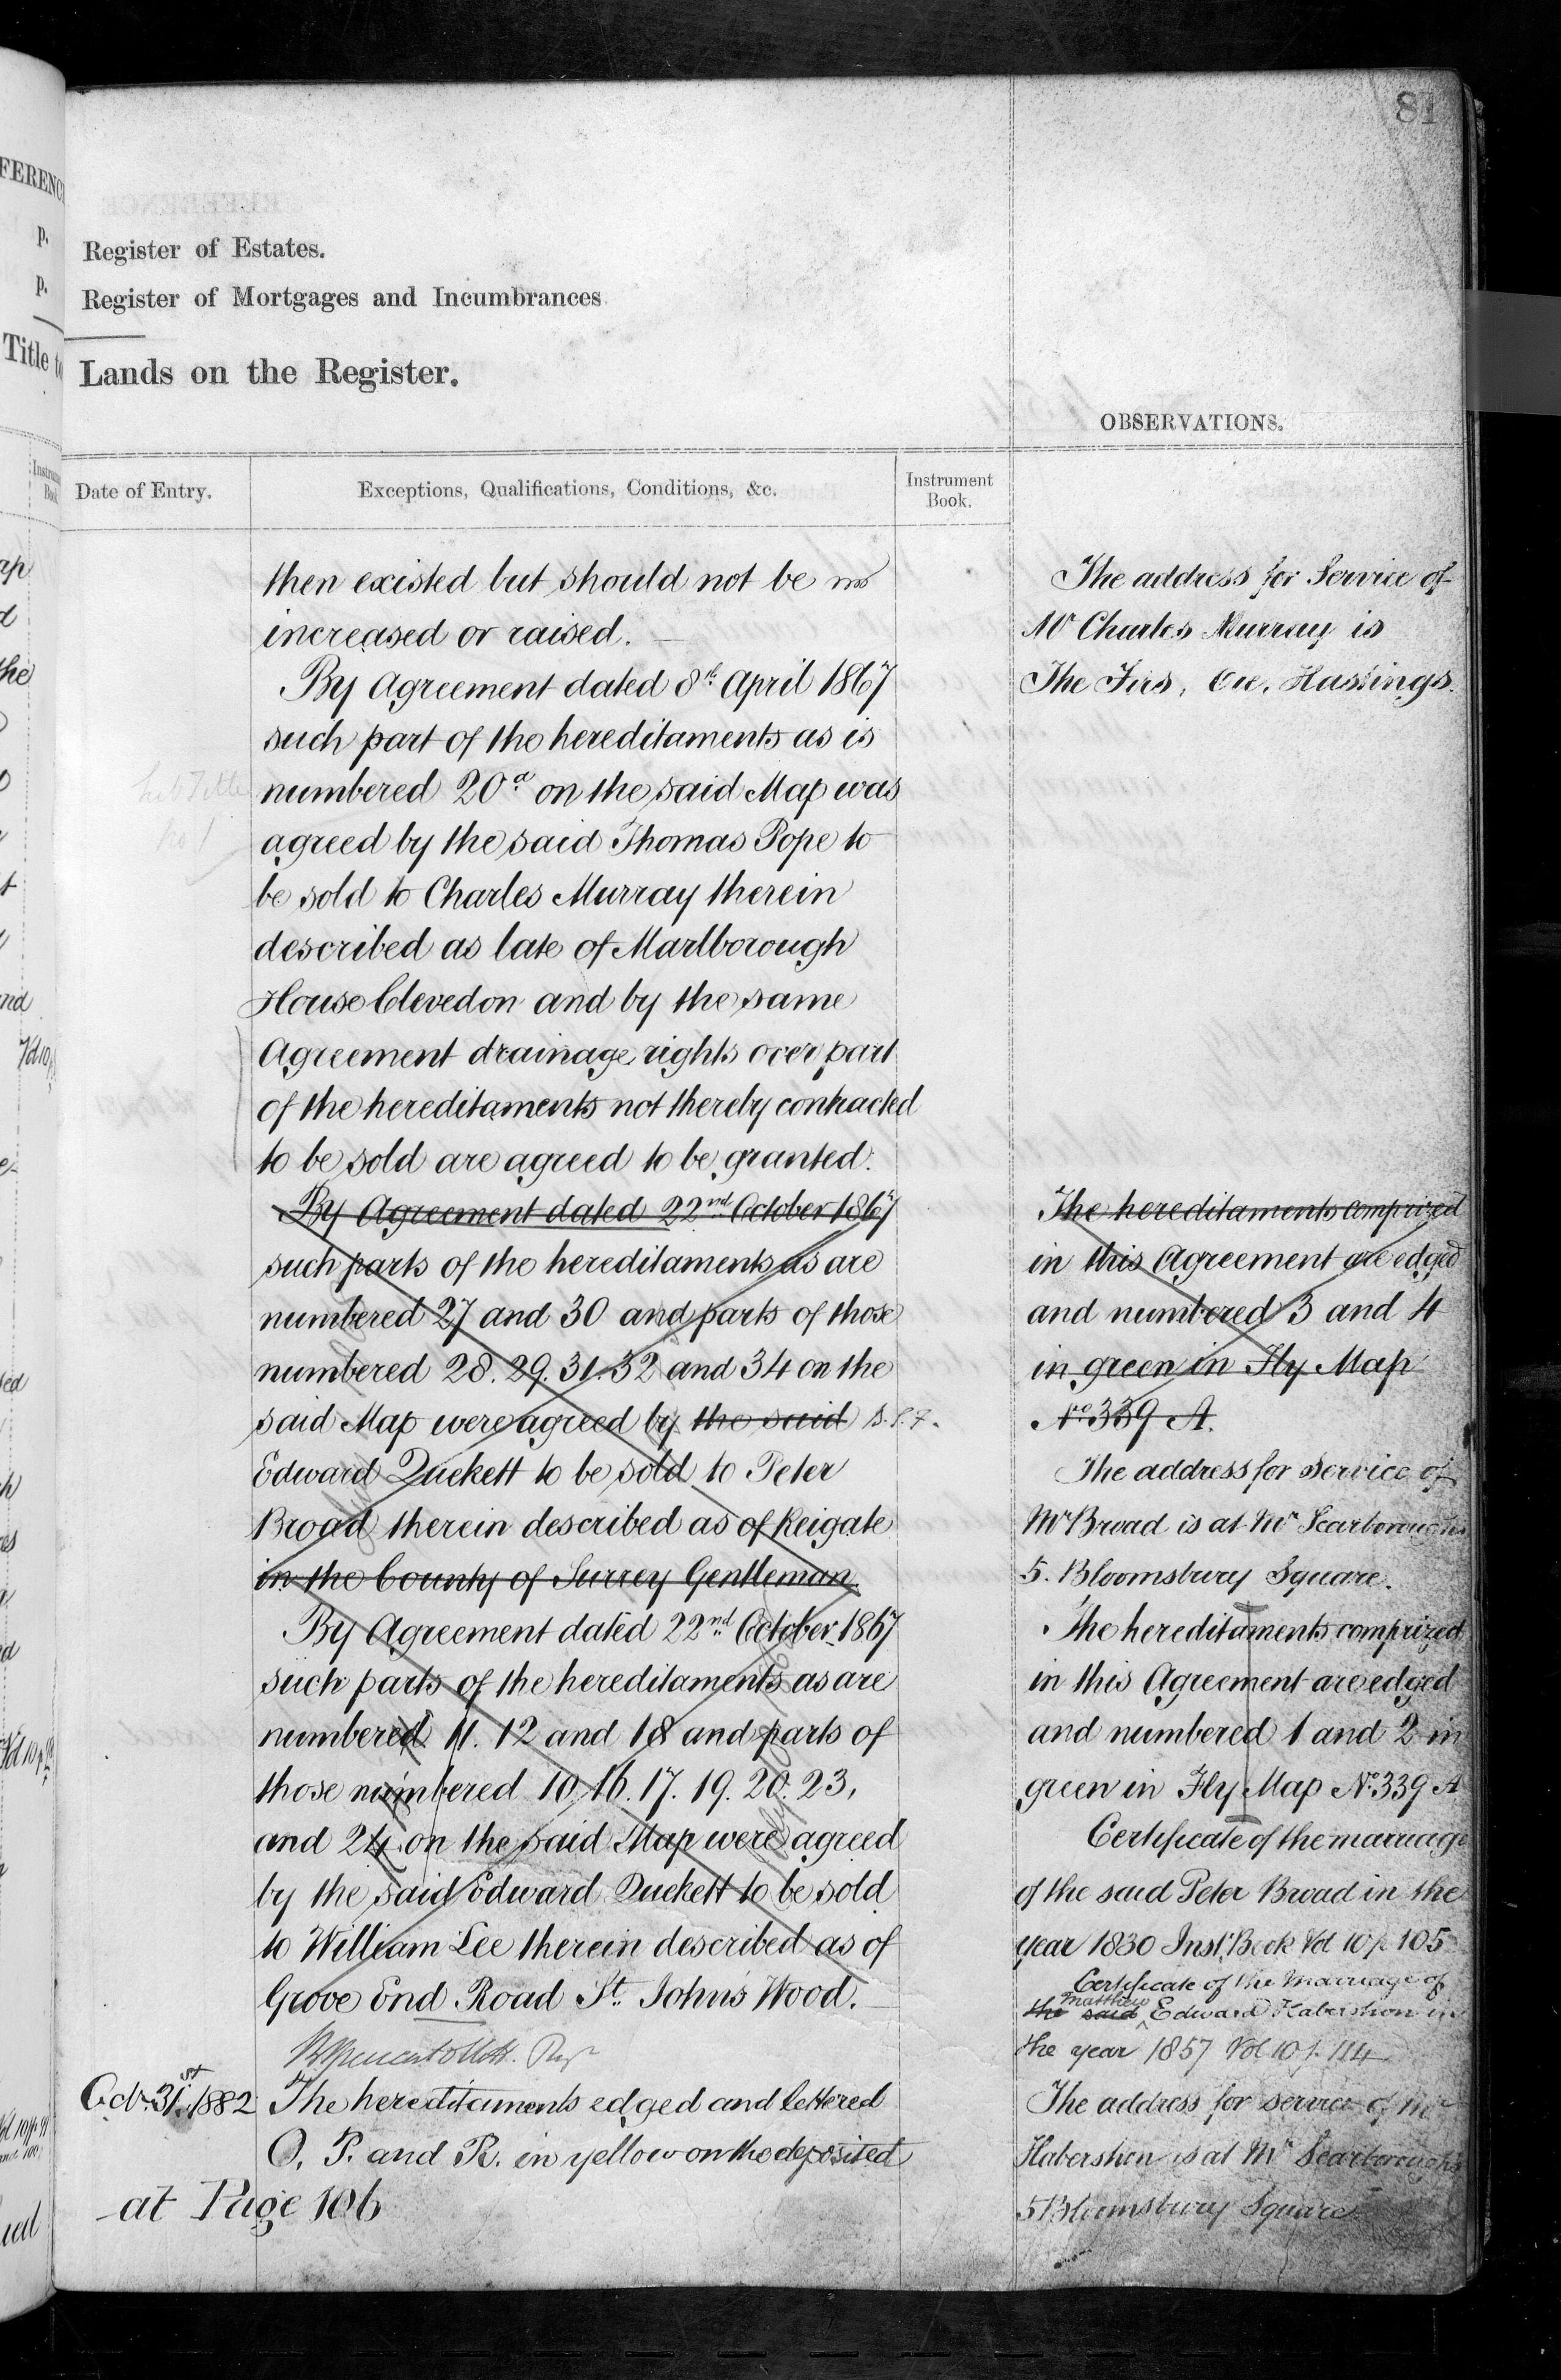 81
FERENC
p.
p.
Title to
Register of Estates.
Register of Mortgages and Incumbrances
Lands on the Register.
OBSERVATIONS.
Date of Entry.
Exceptions, Qualifications, Conditions, &c.
Instrument
Book.
then existed but should not be
increased or raised.
By Agreement dated 8th April 1867
such part of the hereditaments as is
numbered 20a on the said Map was
agreed by the said Thomas Pope to
be sold to Charles Murray therein
described as late of Marlborough
House Clevedon and by the same
Agreement drainage rights over part
of the hereditaments not thereby contracted
to be sold are agreed to be granted.
By Agreement dated 22nd October 1867
such parts of the hereditaments as are
numbered 27 and 30 and parts of those
numbered 28. 29. 31. 32 and 34 on the
said Map were agreed by the said
Edward Quekett to be sold to Peter
Broad therein described as of Reigate
in the County of Surrey Gentleman.
By Agreement dated 22nd October 1867
such parts of the hereditaments as are
numbered 11. 12 and 18 and parts of
those numbered 10. 16. 17. 19. 20. 23.
and 24 on the said Map were agreed
by the said Edward Quekett to be sold
to William Lee therein described as of
Grove End Road St. John's Wood.
Octr. 31st 1882
The hereditaments edged and lettered
O. P. and R. in yellow on the deposited
at Page 106
The address for Service of
Mr Charles Murray is
The Firs, Ore, Hastings.
The hereditaments comprized
in this Agreement are edged
and numbered 3 and 4
in green in Fly Map
No. 339 A.
The address for Service of
Mr Broad is at Mr Scarborough's
5. Bloomsbury Square.
The hereditaments comprized
in this Agreement are edged
and numbered 1 and 2 in
green in Fly Map No. 339 A
Certificate of the marriage
of the said Peter Broad in the
year 1830 Inst. Book Vol 10 p 105
Certificate of the Marriage of
the said Matthew Edward Habershon in
the year 1857 Vol 10 p. 114
The address for service of Mr
Habershon is at Mr Scarborough's
5 Bloomsbury Square